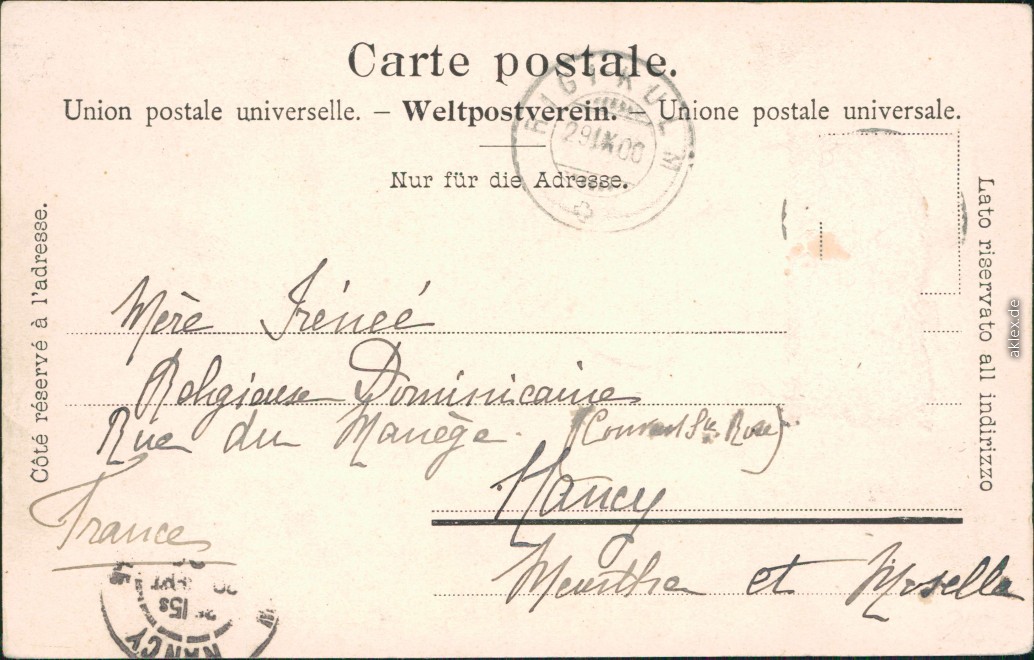 Carte postale.
Union postale universelle. – Weltpostverein. – Unione postale universale.
Nur für die Adresse.
RIGI-KULM
29 IX 00
Côté réservé à l'adresse.
Lato riservato all indirizzo
Mère Irénéé
Religieuse Dominicaine
Rue du Manège. (Couvent Ste Rose)
Nancy
France
Meurthe et Moselle
NANCY
aklex.de